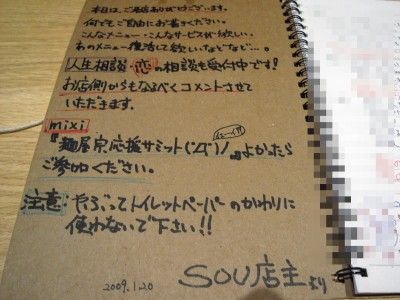 本日は、ご来店ありがとうございます。
何でもご自由にお書きください。
こんなメニュー・こんなサービスが欲しい。
あのメニュー復活して欲しいなどなど…。
人生相談・恋の相談も受付中です!
お店側からもなるべくコメントさせて
いただきます。
mixi
『麺屋宗応援サミット(゚Д゚)ノ』よかったら
ご参加ください。
注意:やぶってトイレットペーパーのかわりに
使わないで下さい!!
2009.1.20
SOU店主より